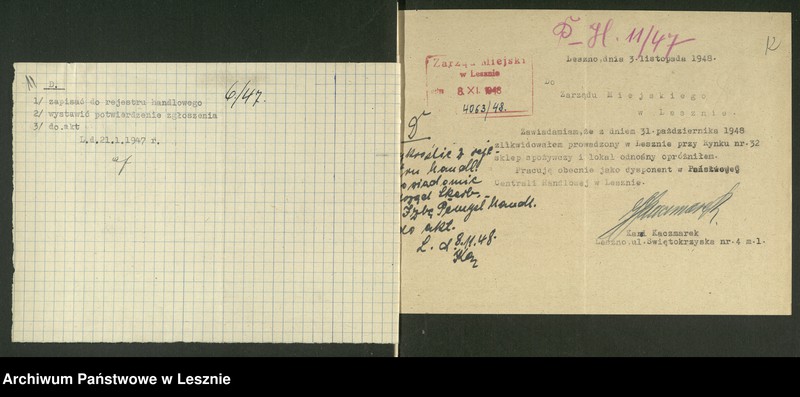 D.
6/47.
1/ zapisać do rejestru handlowego
2/ wystawić potwierdzenie zgłoszenia
3/ do akt
L.d.21.1.1947 r.
D-H. 11/47
12
Leszno,dnia 3-listopada 1948.
Zarząd Miejski
w Lesznie
8. XI. 1948
4063/48.
Do
Zarządu Miejskiego
w Lesznie.
Zawiadamiam,że z dniem 31-października 1948
zlikwidowałem prowadzony w Lesznie przy Rynku nr-32
sklep spożywczy i lokal odnośny opróżniłem.
Pracuję obecnie jako dysponent w Państwowej
Centrali Handlowej w Lesznie.
D
z reje-
stru handl.
Izbę Przemysł. Handl.
do akt.
L. d. 8.11.48.
Kaczmarek
Leszno,ul.Świętokrzyska nr-4 m-1.
Archiwum Państwowe w Lesznie